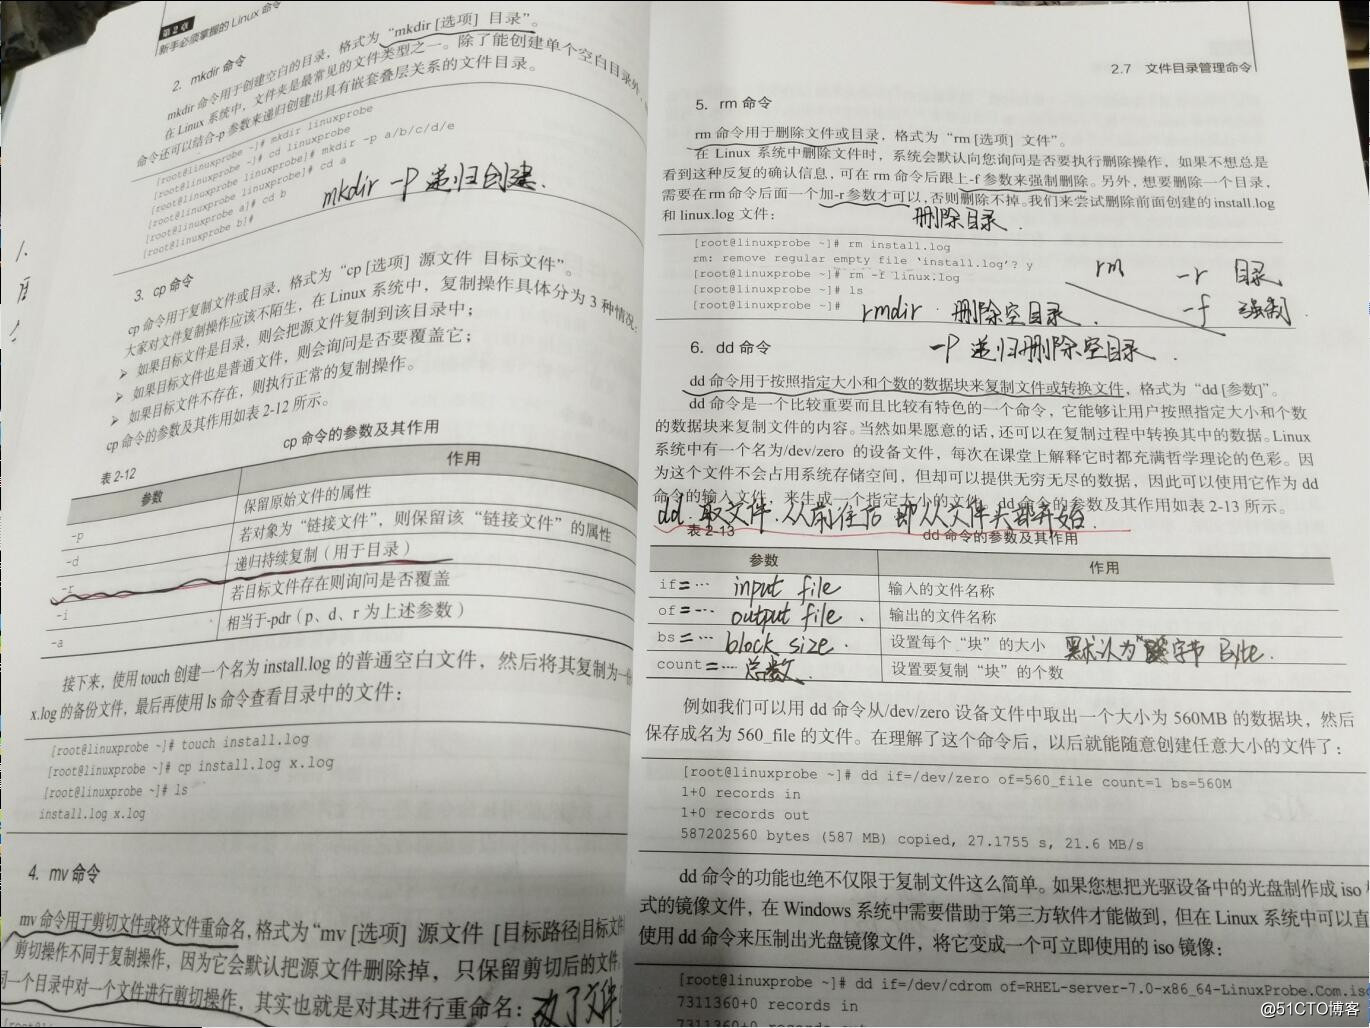 第2章
新手必须掌握的 Linux 命令
2. mkdir 命令
mkdir 命令用于创建空白的目录，格式为“mkdir [选项] 目录”。
在 Linux 系统中，文件夹是最常见的文件类型之一。除了能创建单个空白目录外，
命令还可以结合-p 参数来递归创建出具有嵌套叠层关系的文件目录。
[root@linuxprobe ~]# mkdir linuxprobe
[root@linuxprobe ~]# cd linuxprobe
[root@linuxprobe linuxprobe]# mkdir -p a/b/c/d/e
[root@linuxprobe linuxprobe]# cd a
[root@linuxprobe a]# cd b
[root@linuxprobe b]#
mkdir -p 递归创建.
3. cp 命令
cp 命令用于复制文件或目录，格式为“cp [选项] 源文件 目标文件”。
大家对文件复制操作应该不陌生，在 Linux 系统中，复制操作具体分为 3 种情况：
➢ 如果目标文件是目录，则会把源文件复制到该目录中；
➢ 如果目标文件也是普通文件，则会询问是否要覆盖它；
➢ 如果目标文件不存在，则执行正常的复制操作。
cp 命令的参数及其作用如表 2-12 所示。
表 2-12 cp 命令的参数及其作用
参数 作用
-p 保留原始文件的属性
-d 若对象为“链接文件”，则保留该“链接文件”的属性
-r 递归持续复制（用于目录）
-i 若目标文件存在则询问是否覆盖
-a 相当于-pdr（p、d、r 为上述参数）
接下来，使用 touch 创建一个名为 install.log 的普通空白文件，然后将其复制为一份
x.log 的备份文件，最后再使用 ls 命令查看目录中的文件：
[root@linuxprobe ~]# touch install.log
[root@linuxprobe ~]# cp install.log x.log
[root@linuxprobe ~]# ls
install.log x.log
4. mv 命令
mv 命令用于剪切文件或将文件重命名，格式为“mv [选项] 源文件 [目标路径|目标文件
剪切操作不同于复制操作，因为它会默认把源文件删除掉，只保留剪切后的文件。
同一个目录中对一个文件进行剪切操作，其实也就是对其进行重命名：
2.7 文件目录管理命令
5. rm 命令
rm 命令用于删除文件或目录，格式为“rm [选项] 文件”。
在 Linux 系统中删除文件时，系统会默认向您询问是否要执行删除操作，如果不想总是
看到这种反复的确认信息，可在 rm 命令后跟上-f 参数来强制删除。另外，想要删除一个目录，
需要在 rm 命令后面一个加-r 参数才可以，否则删除不掉。我们来尝试删除前面创建的 install.log
和 linux.log 文件：
删除目录.
[root@linuxprobe ~]# rm install.log
rm: remove regular empty file ‘install.log’? y
[root@linuxprobe ~]# rm -f linux.log
[root@linuxprobe ~]# ls
[root@linuxprobe ~]#
rm -r 目录
-f 强制.
rmdir 删除空目录.
-P 递归删除空目录.
6. dd 命令
dd 命令用于按照指定大小和个数的数据块来复制文件或转换文件，格式为“dd [参数]”。
dd 命令是一个比较重要而且比较有特色的一个命令，它能够让用户按照指定大小和个数
的数据块来复制文件的内容。当然如果愿意的话，还可以在复制过程中转换其中的数据。Linux
系统中有一个名为/dev/zero 的设备文件，每次在课堂上解释它时都充满哲学理论的色彩。因
为这个文件不会占用系统存储空间，但却可以提供无穷无尽的数据，因此可以使用它作为 dd
命令的输入文件，来生成一个指定大小的文件。dd 命令的参数及其作用如表 2-13 所示。
dd 取文件.从前往后 即从文件头部开始.
表 2-13 dd 命令的参数及其作用
参数 作用
if=… input file 输入的文件名称
of=… output file. 输出的文件名称
bs=… block size. 设置每个“块”的大小 默认为 字节 Byte.
count=… 总数. 设置要复制“块”的个数
例如我们可以用 dd 命令从/dev/zero 设备文件中取出一个大小为 560MB 的数据块，然后
保存成名为 560_file 的文件。在理解了这个命令后，以后就能随意创建任意大小的文件了：
[root@linuxprobe ~]# dd if=/dev/zero of=560_file count=1 bs=560M
1+0 records in
1+0 records out
587202560 bytes (587 MB) copied, 27.1755 s, 21.6 MB/s
dd 命令的功能也绝不仅限于复制文件这么简单。如果您想把光驱设备中的光盘制作成 iso
式的镜像文件，在 Windows 系统中需要借助于第三方软件才能做到，但在 Linux 系统中可以直
使用 dd 命令来压制出光盘镜像文件，将它变成一个可立即使用的 iso 镜像：
[root@linuxprobe ~]# dd if=/dev/cdrom of=RHEL-server-7.0-x86_64-LinuxProbe.Com.iso
7311360+0 records in
7311360+0 records out
@51CTO博客